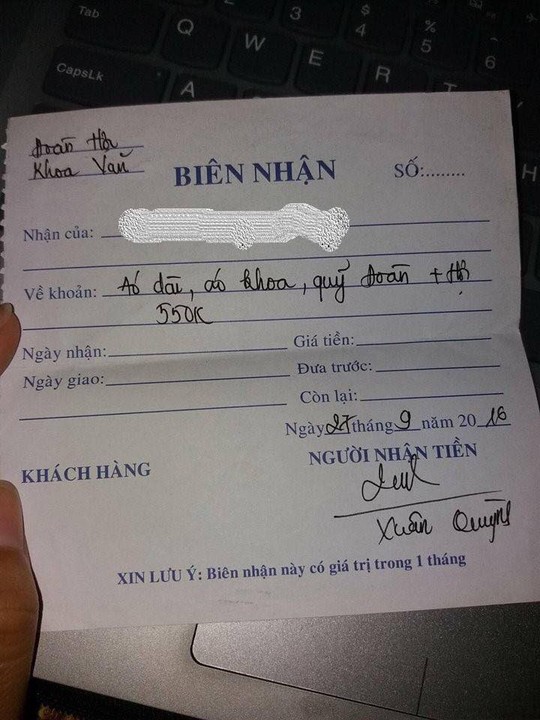 Tab
3
$
4
%
5
6
Q
W
E
R
CapsLk
A
H
Đoàn Hội
Khoa Văn
BIÊN NHẬN
SỐ:........
Nhận của:
Về khoản: Áo dài, áo khoa, quỹ Đoàn + Hội
550K
Ngày nhận:
Giá tiền:
Ngày giao:
Đưa trước:
Còn lại:
Ngày 27 tháng 9 năm 20 16
KHÁCH HÀNG
NGƯỜI NHẬN TIỀN
Xuân Quỳnh
XIN LƯU Ý: Biên nhận này có giá trị trong 1 tháng